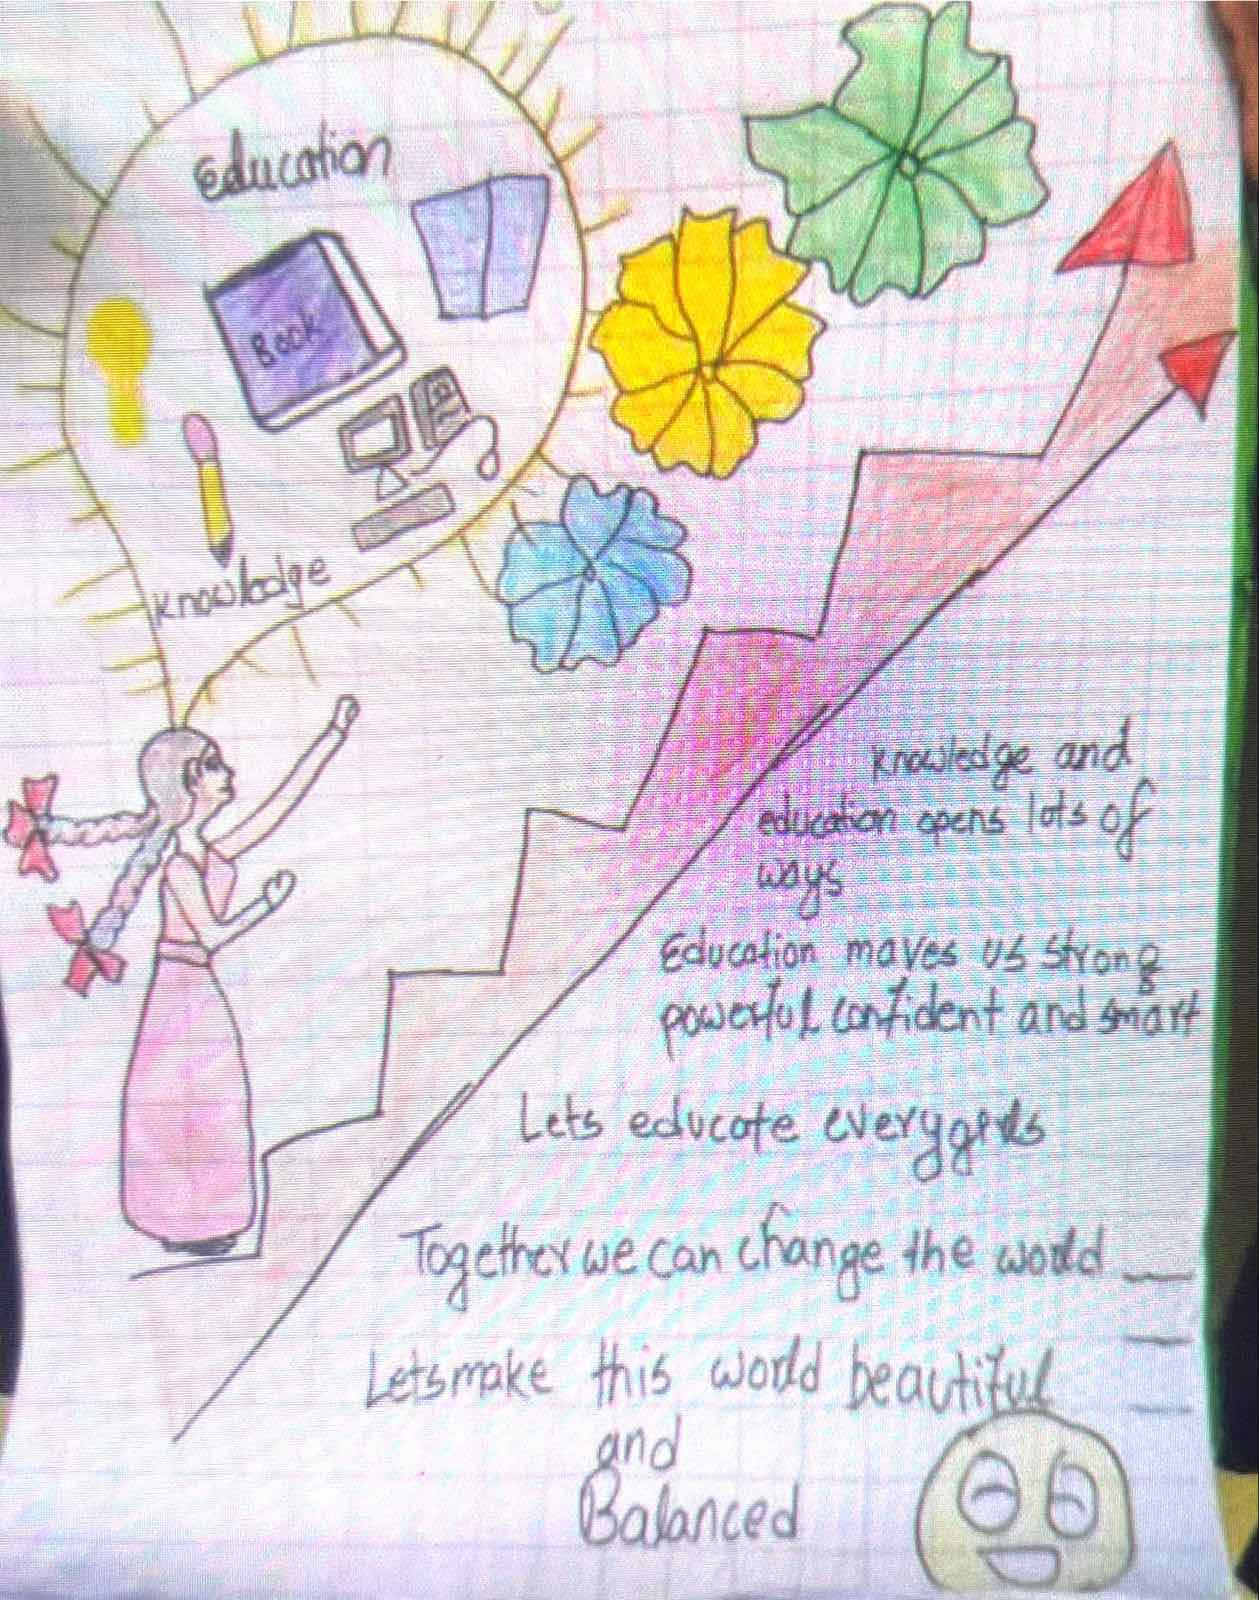 Education
Book
Knowledge
Knowledge and
education opens lots of
ways
Education maves us strong
powerful confident and smart
Lets educate every girls
Together we can change the world
Lets make this world beautiful
and
Balanced